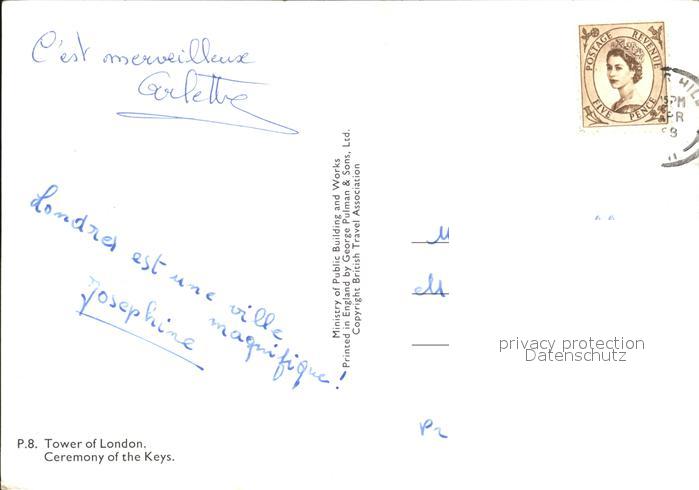 C'est merveilleux
Arlette
Londres est une ville
magnifique!
Josephine
P.8. Tower of London.
Ceremony of the Keys.
Ministry of Public Building and Works
Printed in England by George Pulman & Sons, Ltd.
Copyright British Travel Association
POSTAGE REVENUE
FIVE PENCE
PM
PR
M
M
privacy protection
Datenschutz